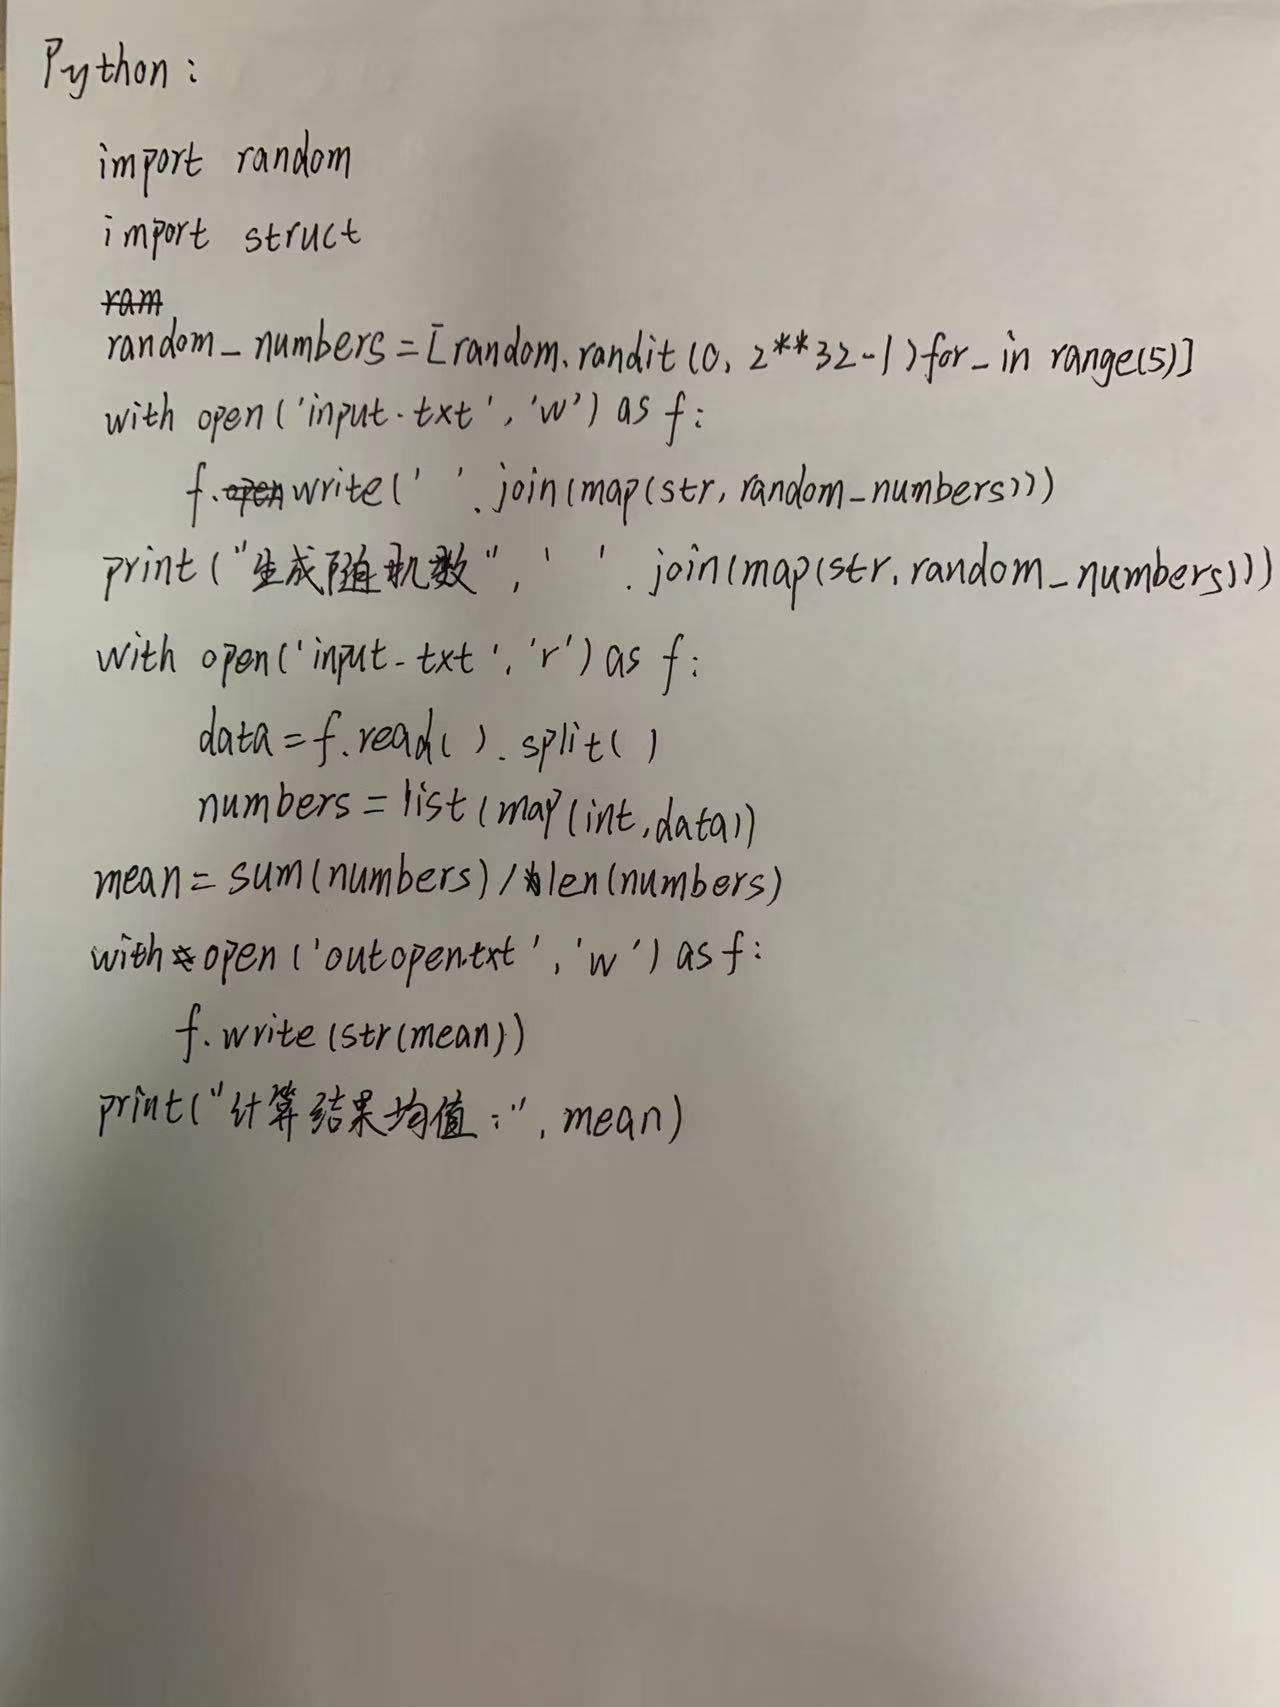 Python:
import random
import struct
ram
random_numbers=[random.randit(0, 2**32-1)for_in range(5)]
with open('input.txt','w') as f:
f.open write(' '.join(map(str, random_numbers)))
print("生成随机数",' '.join(map(str,random_numbers)))
with open('input.txt','r') as f:
data=f.read().split()
numbers=list(map(int,data))
mean=sum(numbers)/len(numbers)
with open('outopen.txt','w') as f:
f.write(str(mean))
print("计算结果均值:",mean)